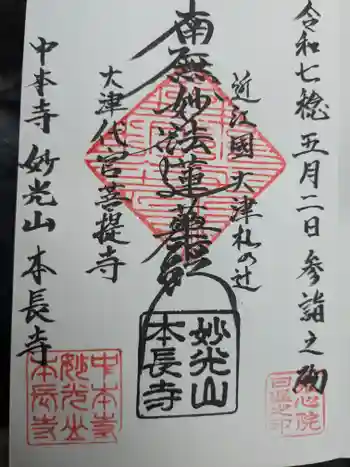 令和七稔五月二日参詣之砌
近江國大津札の辻
南無妙法蓮華経
大津代官菩提寺
中本寺妙光山本長寺
妙光山
本長寺
中本寺
妙光山
本長寺